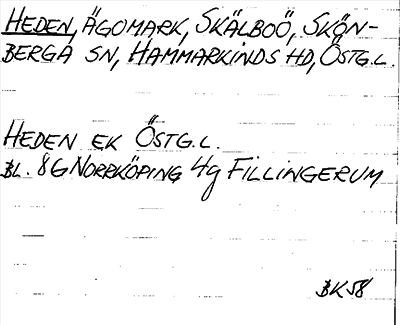 HEDEN, ÄGOMARK, SKÄLBOÖ, SKÖN-
BERGA SN, HAMMARKINDS HD, ÖSTG.L.
HEDEN EK ÖSTG.L.
BL. 8G NORRKÖPING 4g FILLINGERUM
BK58